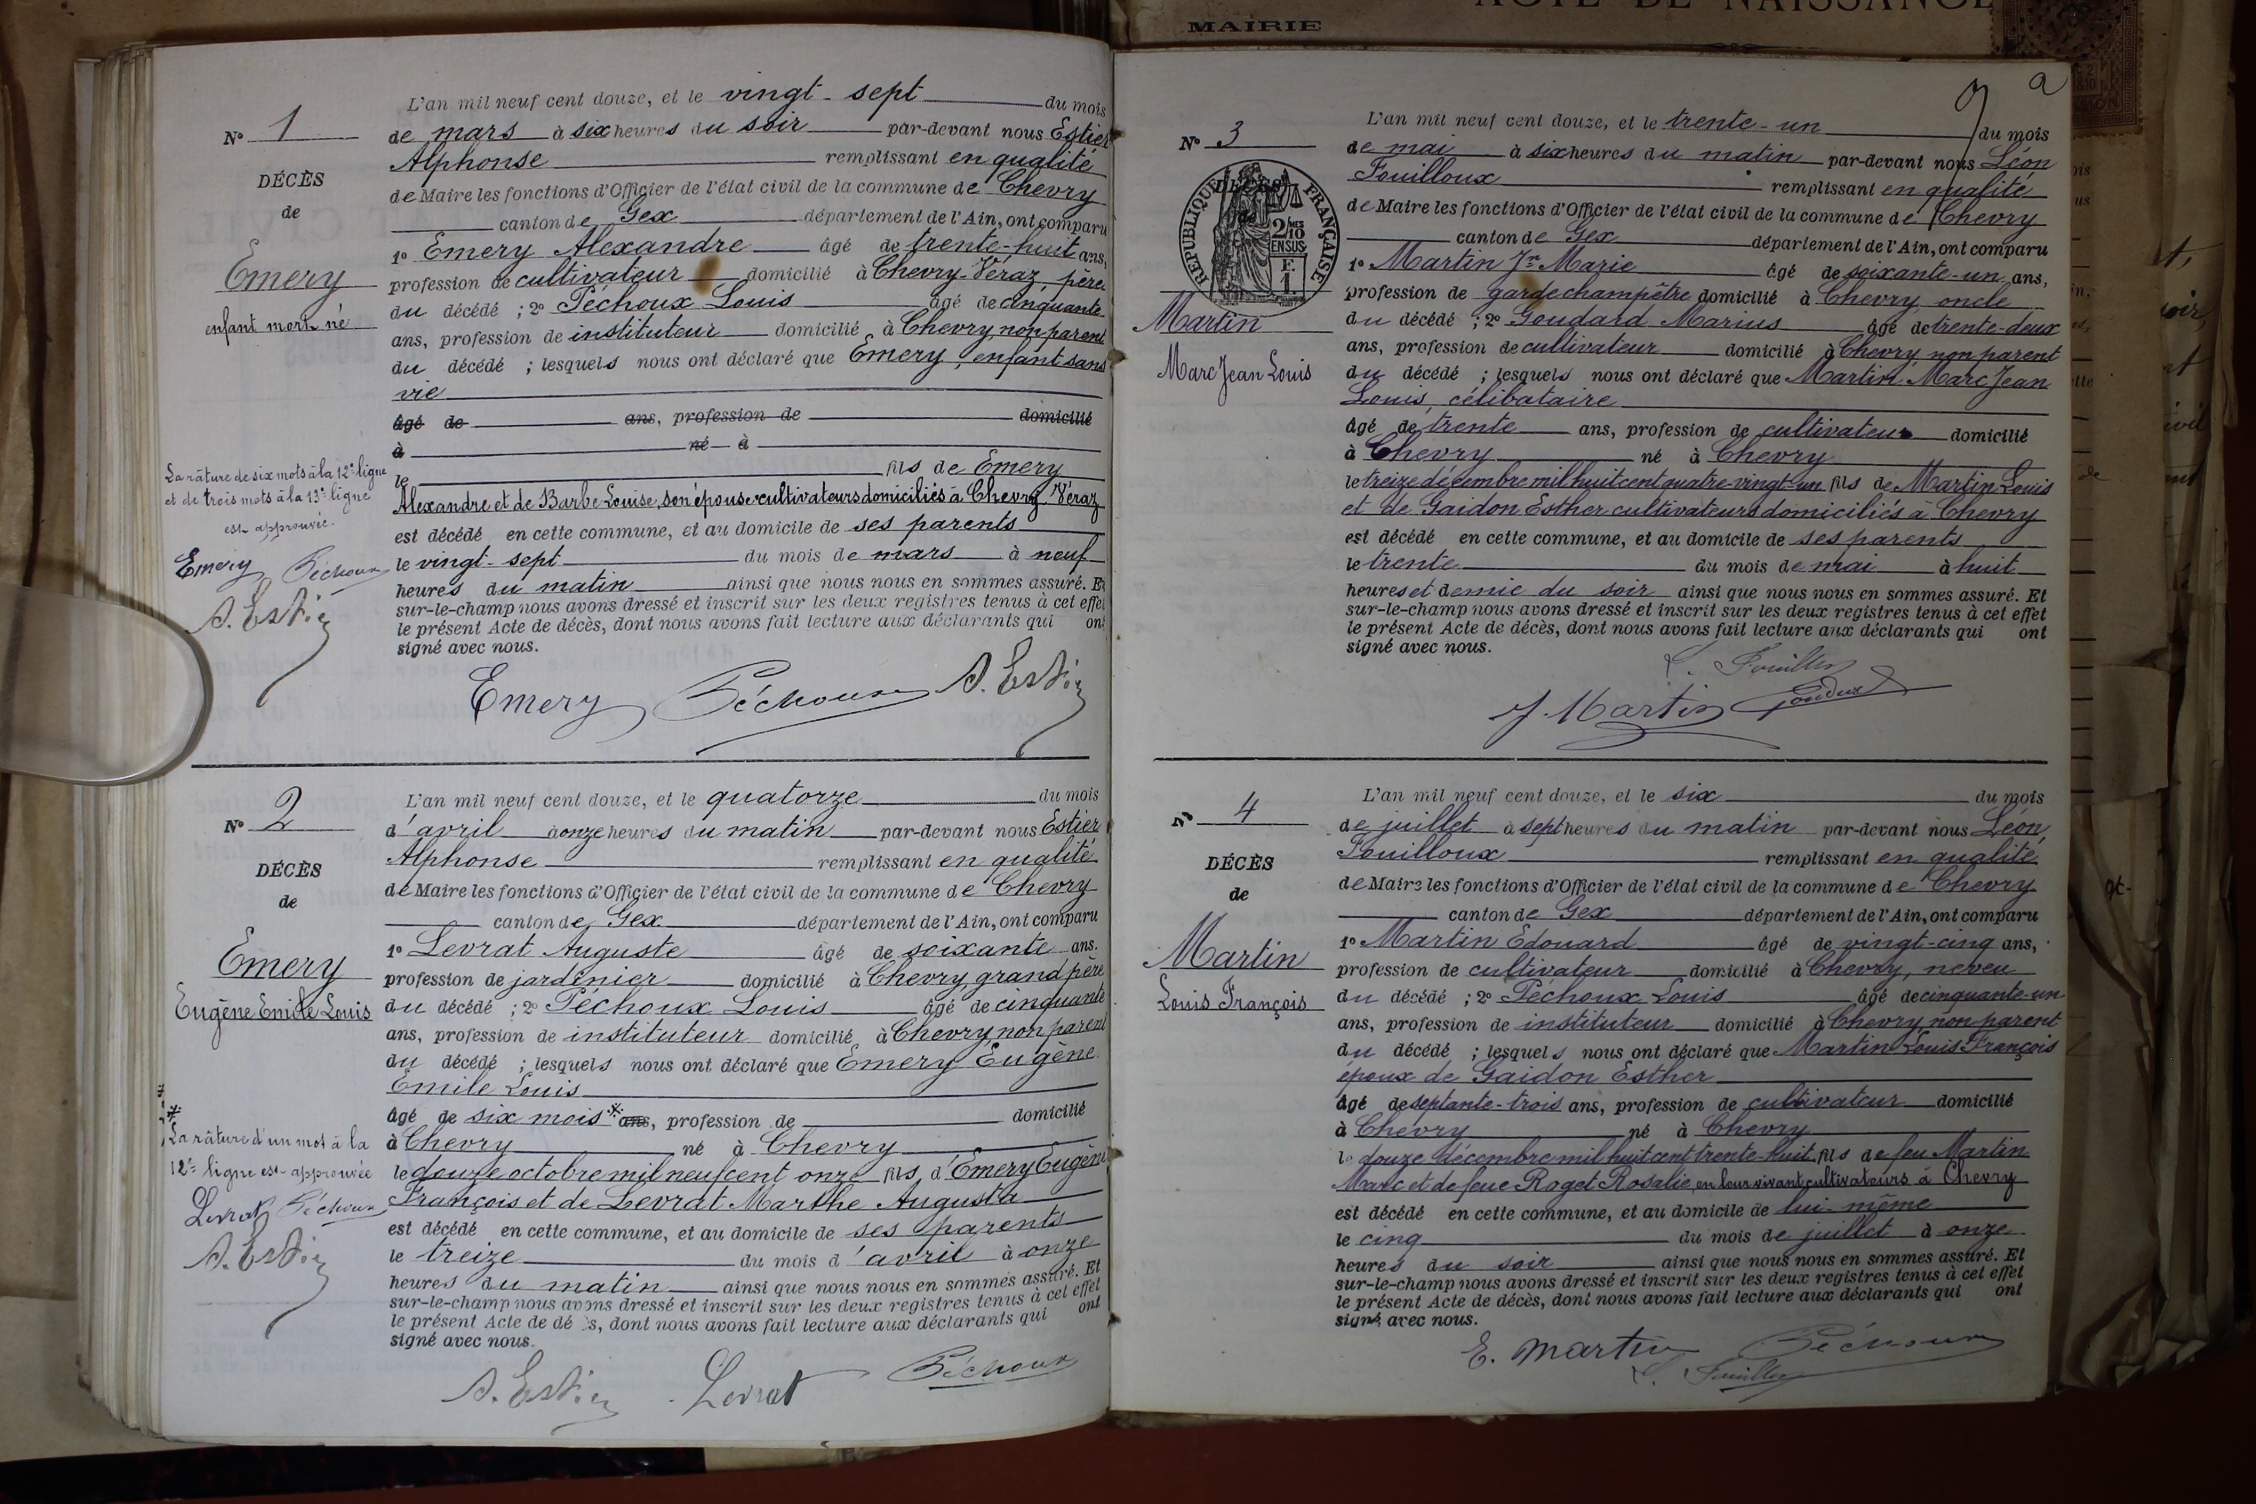 ACTE DE NAISSANCE
MAIRIE
N° 1
DÉCÈS
de
Emery
enfant mort-né
L'an mil neuf cent douze, et le vingt-sept du mois
de mars à six heures du soir par-devant nous Estier
Alphonse remplissant en qualité
de Maire les fonctions d'Officier de l'état civil de la commune de Chevry
canton de Gex département de l'Ain, ont comparu
1° Emery Alexandre âgé de trente-huit ans,
profession de cultivateur domicilié à Chevry Véraz, père
du décédé ; 2° Péchoux Louis âgé de cinquante
ans, profession de instituteur domicilié à Chevry, non parent
du décédé ; lesquels nous ont déclaré que Emery, enfant sans
vie
âgé de ans, profession de domicilié
à né à
le fils de Emery
Alexandre et de Barbe Louise, son épouse cultivateurs domiciliés à Chevry-Véraz
est décédé en cette commune, et au domicile de ses parents
le vingt-sept du mois de mars à neuf
heures du matin ainsi que nous nous en sommes assuré. Et
sur-le-champ nous avons dressé et inscrit sur les deux registres tenus à cet effet
le présent Acte de décès, dont nous avons fait lecture aux déclarants qui ont
signé avec nous.
La râture de six mots à la 12e ligne
et de trois mots à la 13e ligne
est approuvée.
Emery Péchoux
A. Estier
Emery Péchoux A. Estier
N° 2
DÉCÈS
de
Emery
Eugène Emile Louis
L'an mil neuf cent douze, et le quatorze du mois
d'avril à onze heures du matin par-devant nous Estier
Alphonse remplissant en qualité
de Maire les fonctions d'Officier de l'état civil de la commune de Chevry
canton de Gex département de l'Ain, ont comparu
1° Levrat Auguste âgé de soixante ans.
profession de jardinier domicilié à Chevry, grand père
du décédé ; 2° Péchoux Louis âgé de cinquante
ans, profession de instituteur domicilié à Chevry, non parent
du décédé ; lesquels nous ont déclaré que Emery Eugène
Emile Louis
âgé de six mois ans, profession de domicilié
à Chevry né à Chevry
le douze octobre mil neuf cent onze fils d'Emery Eugène
François et de Levrat Marthe Augusta
est décédé en cette commune, et au domicile de ses parents
le treize du mois d'avril à onze
heures du matin ainsi que nous nous en sommes assuré. Et
sur-le-champ nous avons dressé et inscrit sur les deux registres tenus à cet effet
le présent Acte de décès, dont nous avons fait lecture aux déclarants qui ont
signé avec nous.
La râture d'un mot à la
12e ligne est approuvée
Levrat Péchoux
A. Estier
A. Estier Levrat Péchoux
N° 3
DÉCÈS
de
RÉPUBLIQUE FRANÇAISE
2/10 EN SUS
F. 1.
Martin
Marc Jean Louis
L'an mil neuf cent douze, et le trente-un du mois
de mai à six heures du matin par-devant nous Léon
Fouilloux remplissant en qualité
de Maire les fonctions d'Officier de l'état civil de la commune de Chevry
canton de Gex département de l'Ain, ont comparu
1° Martin Jn Marie âgé de soixante-un ans,
profession de garde champêtre domicilié à Chevry, oncle
du décédé ; 2° Goudard Marius âgé de trente-deux
ans, profession de cultivateur domicilié à Chevry, non parent
du décédé ; lesquels nous ont déclaré que Martin, Marc Jean
Louis, célibataire
âgé de trente ans, profession de cultivateur domicilié
à Chevry né à Chevry
le treize décembre mil huit cent quatre-vingt-un fils de Martin Louis
et de Gaidon Esther cultivateurs domiciliés à Chevry
est décédé en cette commune, et au domicile de ses parents
le trente du mois de mai à huit
heures et demie du soir ainsi que nous nous en sommes assuré. Et
sur-le-champ nous avons dressé et inscrit sur les deux registres tenus à cet effet
le présent Acte de décès, dont nous avons fait lecture aux déclarants qui ont
signé avec nous.
L. Fouilloux
J. Martin
N° 4
DÉCÈS
de
Martin
Louis François
L'an mil neuf cent douze, et le six du mois
de juillet à sept heures du matin par-devant nous Léon
Fouilloux remplissant en qualité
de Maire les fonctions d'Officier de l'état civil de la commune de Chevry
canton de Gex département de l'Ain, ont comparu
1° Martin Edouard âgé de vingt-cinq ans,
profession de cultivateur domicilié à Chevry, neveu
du décédé ; 2° Péchoux Louis âgé de cinquante-un
ans, profession de instituteur domicilié à Chevry, non parent
du décédé ; lesquels nous ont déclaré que Martin Louis François
époux de Gaidon Esther
âgé de septante-trois ans, profession de cultivateur domicilié
à Chevry né à Chevry
le douze décembre mil huit cent trente-huit fils de feu Martin
Marc et de feue Roget Rosalie, en leur vivant cultivateurs à Chevry
est décédé en cette commune, et au domicile de lui-même
le cinq du mois de juillet à onze
heures du soir ainsi que nous nous en sommes assuré. Et
sur-le-champ nous avons dressé et inscrit sur les deux registres tenus à cet effet
le présent Acte de décès, dont nous avons fait lecture aux déclarants qui ont
signé avec nous.
E. Martin Péchoux
L. Fouilloux